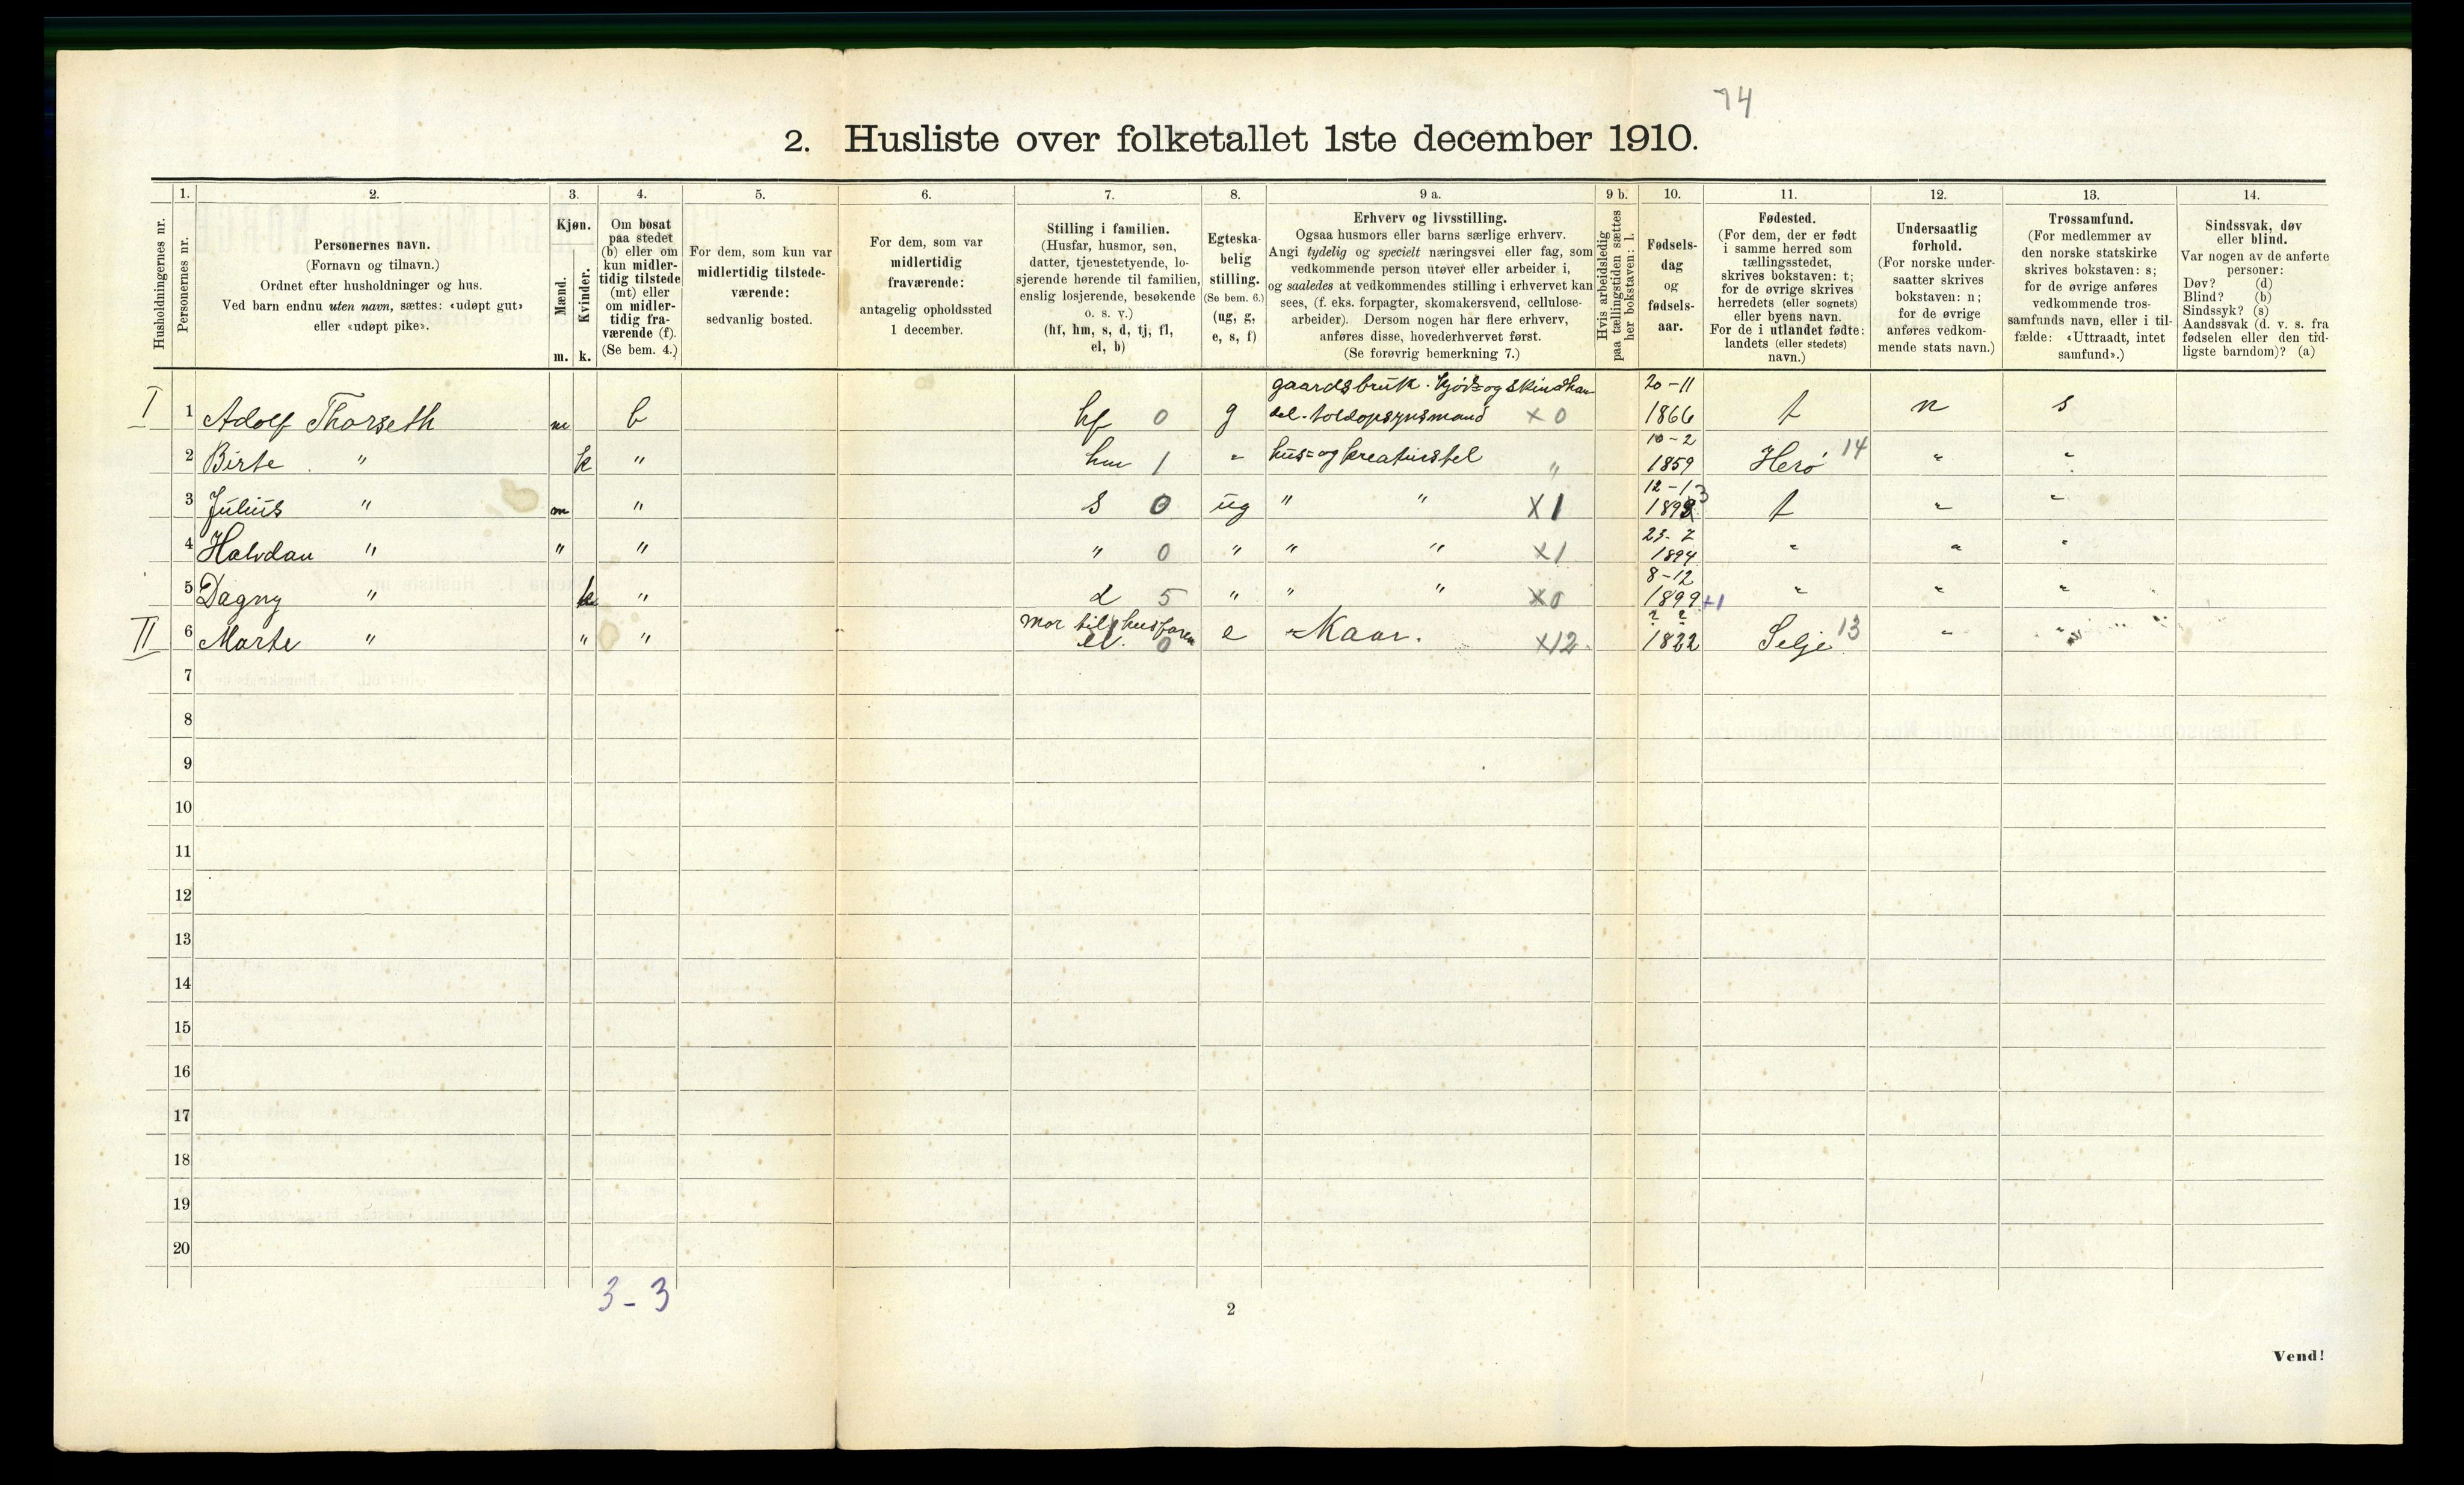 74
2. Husliste over folketallet 1ste december 1910.
1. 2. 3. 4. 5. 6. 7. 8. 9 a. 9 b. 10. 11. 12. 13. 14.
Husholdningernes nr.
Personernes nr.
Personernes navn.
(Fornavn og tilnavn.)
Ordnet efter husholdninger og hus.
Ved barn endnu uten navn, sættes: «udøpt gut»
eller «udøpt pike».
Kjøn.
Mænd.
Kvinder.
m. k.
Om bosat
paa stedet
(b) eller om
kun midler-
tidig tilstede
(mt) eller
om midler-
tidig fra-
værende (f).
(Se bem. 4.)
For dem, som kun var
midlertidig tilstede-
værende:
sedvanlig bosted.
For dem, som var
midlertidig
fraværende:
antagelig opholdssted
1 december.
Stilling i familien.
(Husfar, husmor, søn,
datter, tjenestetyende, lo-
sjerende hørende til familien,
enslig losjerende, besøkende
o. s. v.)
(hf, hm, s, d, tj, fl,
el, b)
Egteska-
belig
stilling.
(Se bem. 6.)
(ug, g,
e, s, f)
Erhverv og livsstilling.
Ogsaa husmors eller barns særlige erhverv.
Angi tydelig og specielt næringsvei eller fag, som
vedkommende person utøver eller arbeider i,
og saaledes at vedkommendes stilling i erhvervet kan
sees, (f. eks. forpagter, skomakersvend, cellulose-
arbeider). Dersom nogen har flere erhverv,
anføres disse, hovederhvervet først.
(Se forøvrig bemerkning 7.)
Hvis arbeidsledig
paa tællingstiden sættes
her bokstaven: l.
Fødsels-
dag
og
fødsels-
aar.
Fødested.
(For dem, der er født
i samme herred som
tællingsstedet,
skrives bokstaven: t;
for de øvrige skrives
herredets (eller sognets)
eller byens navn.
For de i utlandet fødte:
landets (eller stedets)
navn.)
Undersaatlig
forhold.
(For norske under-
saatter skrives
bokstaven: n;
for de øvrige
anføres vedkom-
mende stats navn.)
Trossamfund.
(For medlemmer av
den norske statskirke
skrives bokstaven: s;
for de øvrige anføres
vedkommende tros-
samfunds navn, eller i til-
fælde: «Uttraadt, intet
samfund».)
Sindssvak, døv
eller blind.
Var nogen av de anførte
personer:
Døv? (d)
Blind? (b)
Sindssyk? (s)
Aandssvak (d. v. s. fra
fødselen eller den tid-
ligste barndom)? (a)
gaardsbruk. kjöd- og skindhan 20-11
I 1 Adolf Thorseth m b hf 0 g del. toldopsynsmand x0 1866 t n s
10-2
2 Birte " k " hm 1 " hus- og kreaturstel " 1859 Herö 14 " "
12-1
3 Julius " m " s 0 ug " " x1 1893 t " "
23-2
4 Halvdan " " " " 0 " " " x1 1894 " " "
8-12
5 Dagny " k " d 5 " " " x0 1899 +1 " " "
mor til husfaren ? ?
II 6 Marte " " " el. 0 e Kaar. x12 1822 Selje 13 " "
7
8
9
10
11
12
13
14
15
16
17
18
19
20
3-3
2
Vend!